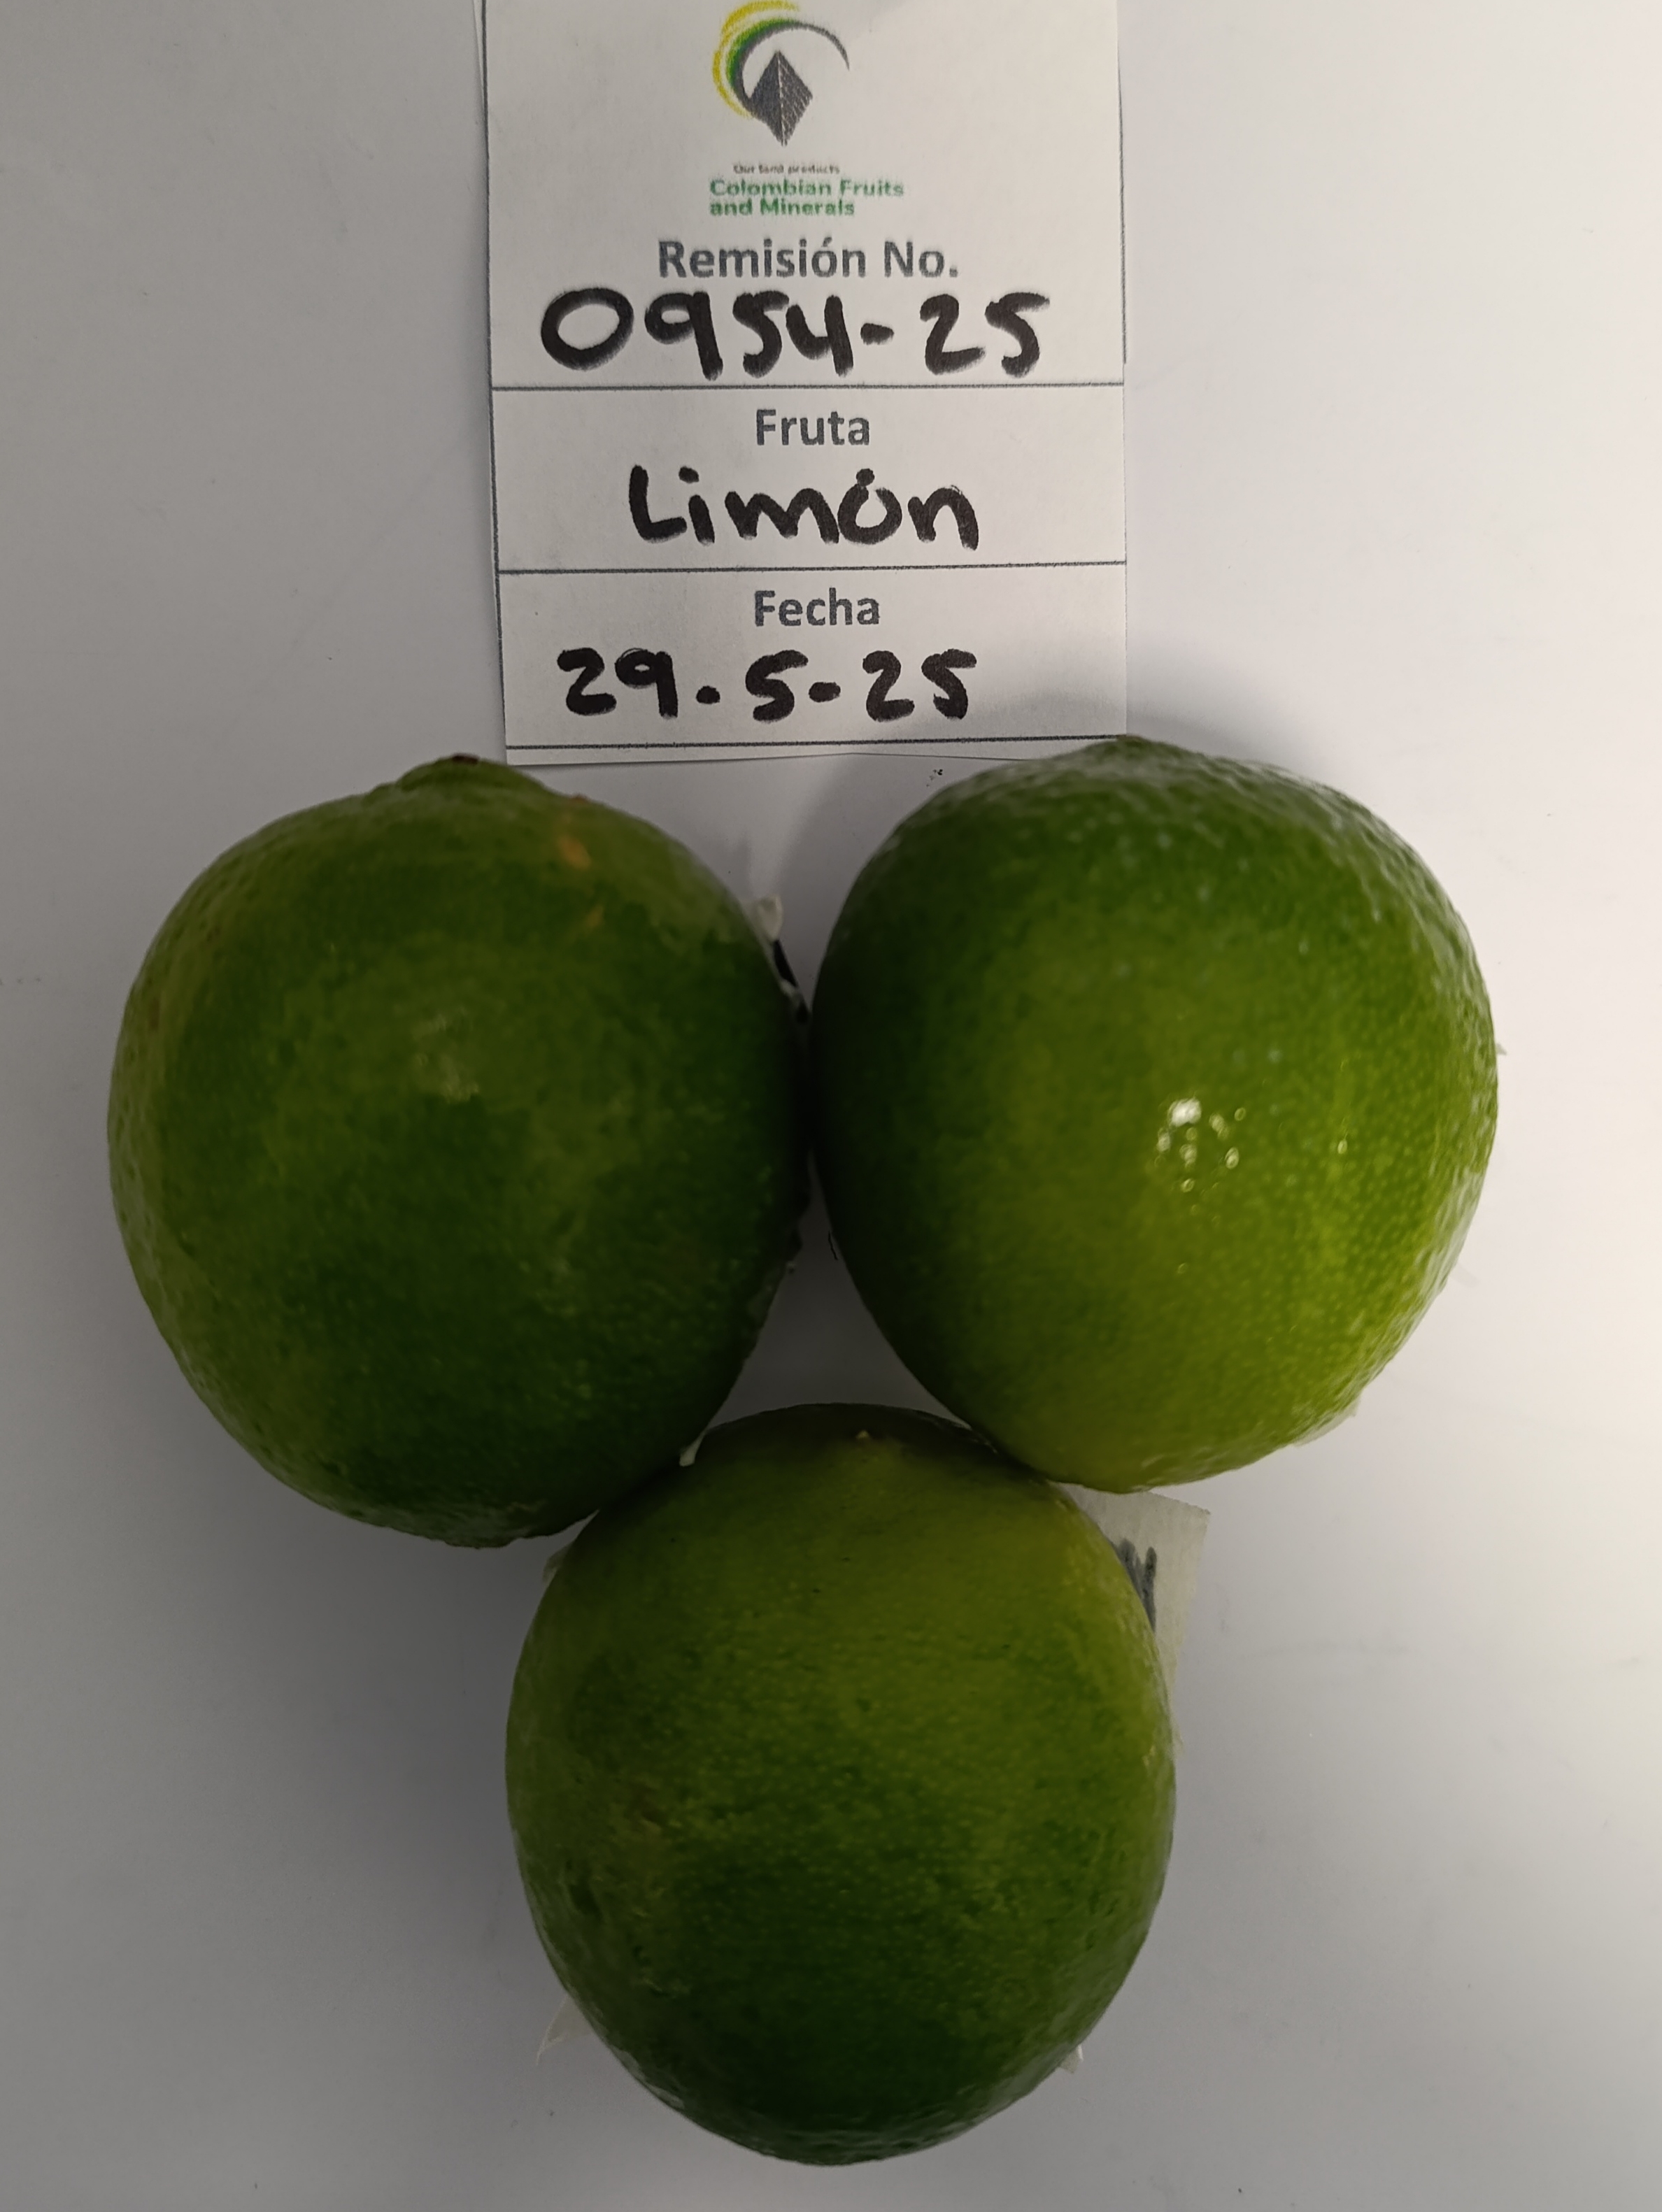 Our land products
Colombian Fruits
and Minerals
Remisión No.
0954-25
Fruta
Limón
Fecha
29.5-25